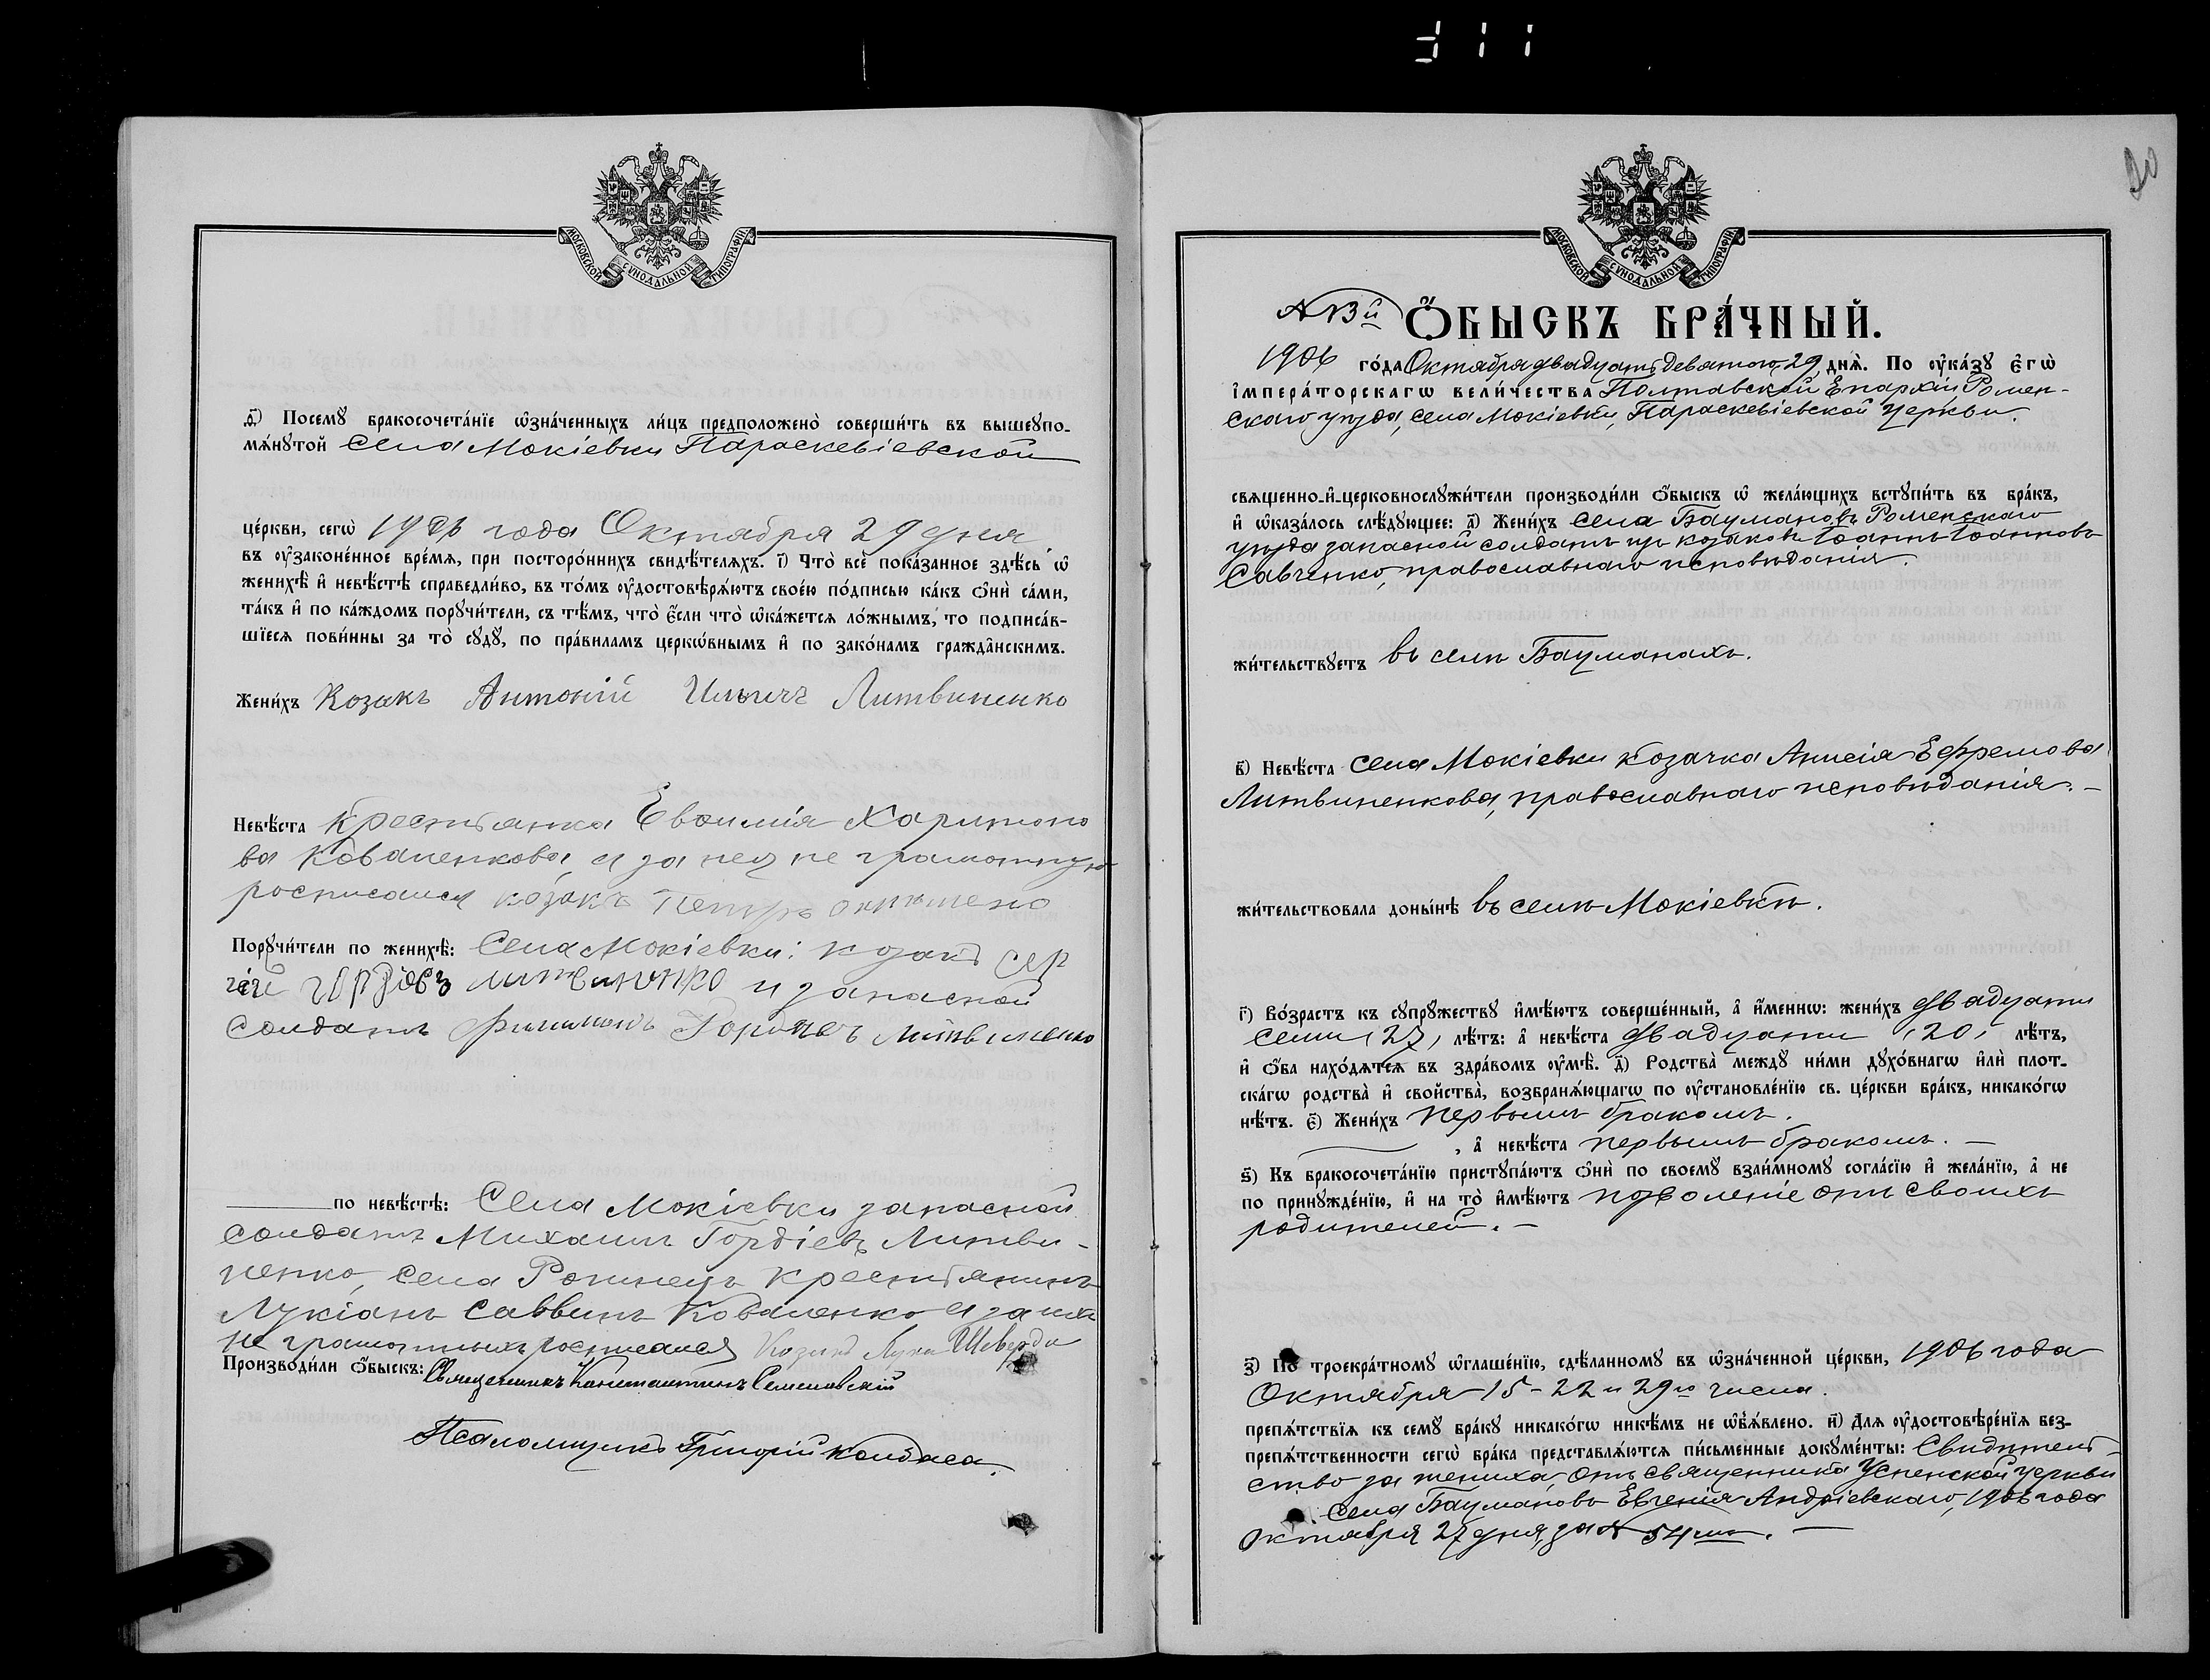 МОСКОВСКОЙ СѴНОДАЛЬНОЙ ТИПОГРАФІИ
ѳ҃) Посемꙋ̀ бракосочета́нїе ѡ҆зна́ченныхъ ли́цъ предположено̀ соверши́ть въ вышеꙋпо-
мѧ́нꙋтой села Мокіевки Параскевіевской
це́ркви, сегѡ̀ 1906 года Октября 29 дня
въ ᲂу҆законе́нное вре́мѧ, при посторо́ннихъ свидѣ́телѧхъ. і҃) Что̀ всѐ пока́занное здѣ́сь ѡ҆
женихѣ̀ и҆ невѣ́стѣ справедли́во, въ то́мъ ᲂу҆достовѣрѧ́ютъ свое́ю по́дписью ка́къ ѻ҆нѝ са́ми,
та́къ и҆ по ка́ждомъ порꙋчи́тели, съ тѣ́мъ, что̀ є҆́сли что̀ ѡ҆ка́жетсѧ ло́жнымъ, то подписа́в-
шїесѧ пови́нны за то̀ сꙋдꙋ̀, по пра́виламъ церкѡ́внымъ и҆ по зако́намъ гражда̑нскимъ.
Жени́хъ Козакъ Антоній Ильичъ Литвиненко
Невѣ́ста Крестьянка Евѳимія Харитоно
ва Коваленкова, а за нея не грамотную
росписался козакъ Петръ
Порꙋчи́тели по женихѣ̀: Села Мокіевки: козакъ Сер
гѣй Гордіевъ Литвиненко и запасной
солдатъ Филимонъ Гордіевъ Литвиненко
по невѣ́стѣ: Села Мокіевки запасной
солдатъ Михаилъ Гордіевъ Литви-
ненко, села Рогинецъ крестьянинъ
Лукіанъ Саввинъ Коваленко а за ихъ
не грамотныхъ росписался Козакъ Лука Шеверда
Производи́ли ѻ҆́быскъ: Священникъ Константинъ Семеновскій
Псаломщикъ Григорій Колбаса.
20
МОСКОВСКОЙ СѴНОДАЛЬНОЙ ТИПОГРАФІИ
№ 13й Ѻ҆́БЫСКЪ БРА́ЧНЫЙ.
1906 го́да Октября двадцать девятого, 29, днѧ̀. По ᲂу҆ка́зꙋ є҆гѡ̀
і҆мпера́торскагѡ вели́чества Полтавской Епархіи, Ромен-
скаго уѣзда, села Мокіевки, Параскевіевской церкви.
свѧщенно-и҆-церковнослꙋжи́тели производи́ли ѻ҆́быскъ ѡ҆ жела́ющихъ встꙋпи́ть въ бра́къ,
и҆ ѡ҆каза́лось слѣ́дꙋющее: а҃) Жени́хъ села Баумановъ Роменскаго
уѣзда запасной солдатъ изъ козаковъ Іоаннъ Іоанновъ
Савченко, православнаго исповѣданія.
жи́тельствꙋетъ въ селѣ Бауманахъ.
в҃) Невѣ́ста села Мокіевки козачка Анисія Ефремова
Литвиненкова, православнаго исповѣданія. –
жи́тельствовала доны́нѣ въ селѣ Мокіевкѣ.
г҃) Во́зрастъ къ сꙋпрꙋ́жествꙋ и҆мѣ́ютъ соверше́нный, а҆ и҆́меннѡ: жени́хъ двадцати
семи (27) лѣ́тъ: а҆ невѣ́ста двадцати (20) лѣ́тъ,
и҆ ѻ҆́ба нахо́дѧтсѧ въ здра́вомъ ᲂу҆мѣ̀. д҃) Родства̀ междꙋ ни́ми дꙋхо́внагѡ и҆лѝ плот-
ска́гѡ родства̀ и҆ сво́йства̀, возбранѧ́ющагѡ по ᲂу҆становле́нїю св. це́ркви бра́къ, никако́гѡ
нѣ́тъ. є҃) Жени́хъ первымъ бракомъ.
, а҆ невѣ́ста первымъ бракомъ. –
ѕ҃) Къ бракосочета́нїю пристꙋпа́ютъ ѻ҆нѝ по своемꙋ̀ взаи́мномꙋ согла́сїю и҆ жела́нїю, а҆ не
по принꙋжде́нїю, и҆ на то̀ и҆мѣ́ютъ позволеніе отъ своихъ
родителей. –
з҃) По троекра́тномꙋ ѡ҆глаше́нїю, сдѣ́ланномꙋ въ ѡ҆зна́ченной це́ркви, 1906 года
Октября 15 – 22 и 29го числа.
препѧ́тствїѧ къ семꙋ̀ бра́кꙋ никако́гѡ никѣ́мъ не ѡ҆б̾ѧ́влено. и҃) Длѧ ᲂу҆достовѣре́нїѧ без-
препѧ́тственности сегѡ̀ бра́ка представлѧ́ютсѧ пи́сьменные докꙋме́нты: Свидѣтель-
ство за жениха, отъ священника Успенской церкви
села Баумановъ Евгенія Андріевскаго, 1906 года
Октября 27 дня, за № 54мъ. –